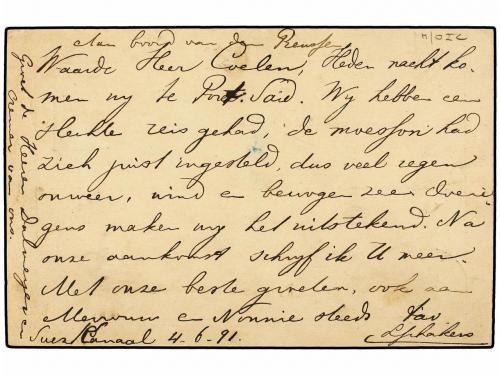 Aan boord van den Preussen
Waarde Heer Coelen, Heden nacht ko-
men wy te Port. Said. Wy hebben een
slechte reis gehad, de moesson had
zich juist ingesteld, dus veel regen
onweer, wind en bewogen zee. Overi-
gens maken wy het uitstekend. Na
onze aankomst schryf ik U meer.
Met onze beste groeten, ook aan
Mevrouw en Nonnie steeds
Suez Kanaal 4-6-91.
Groet de Heeren
van ons.